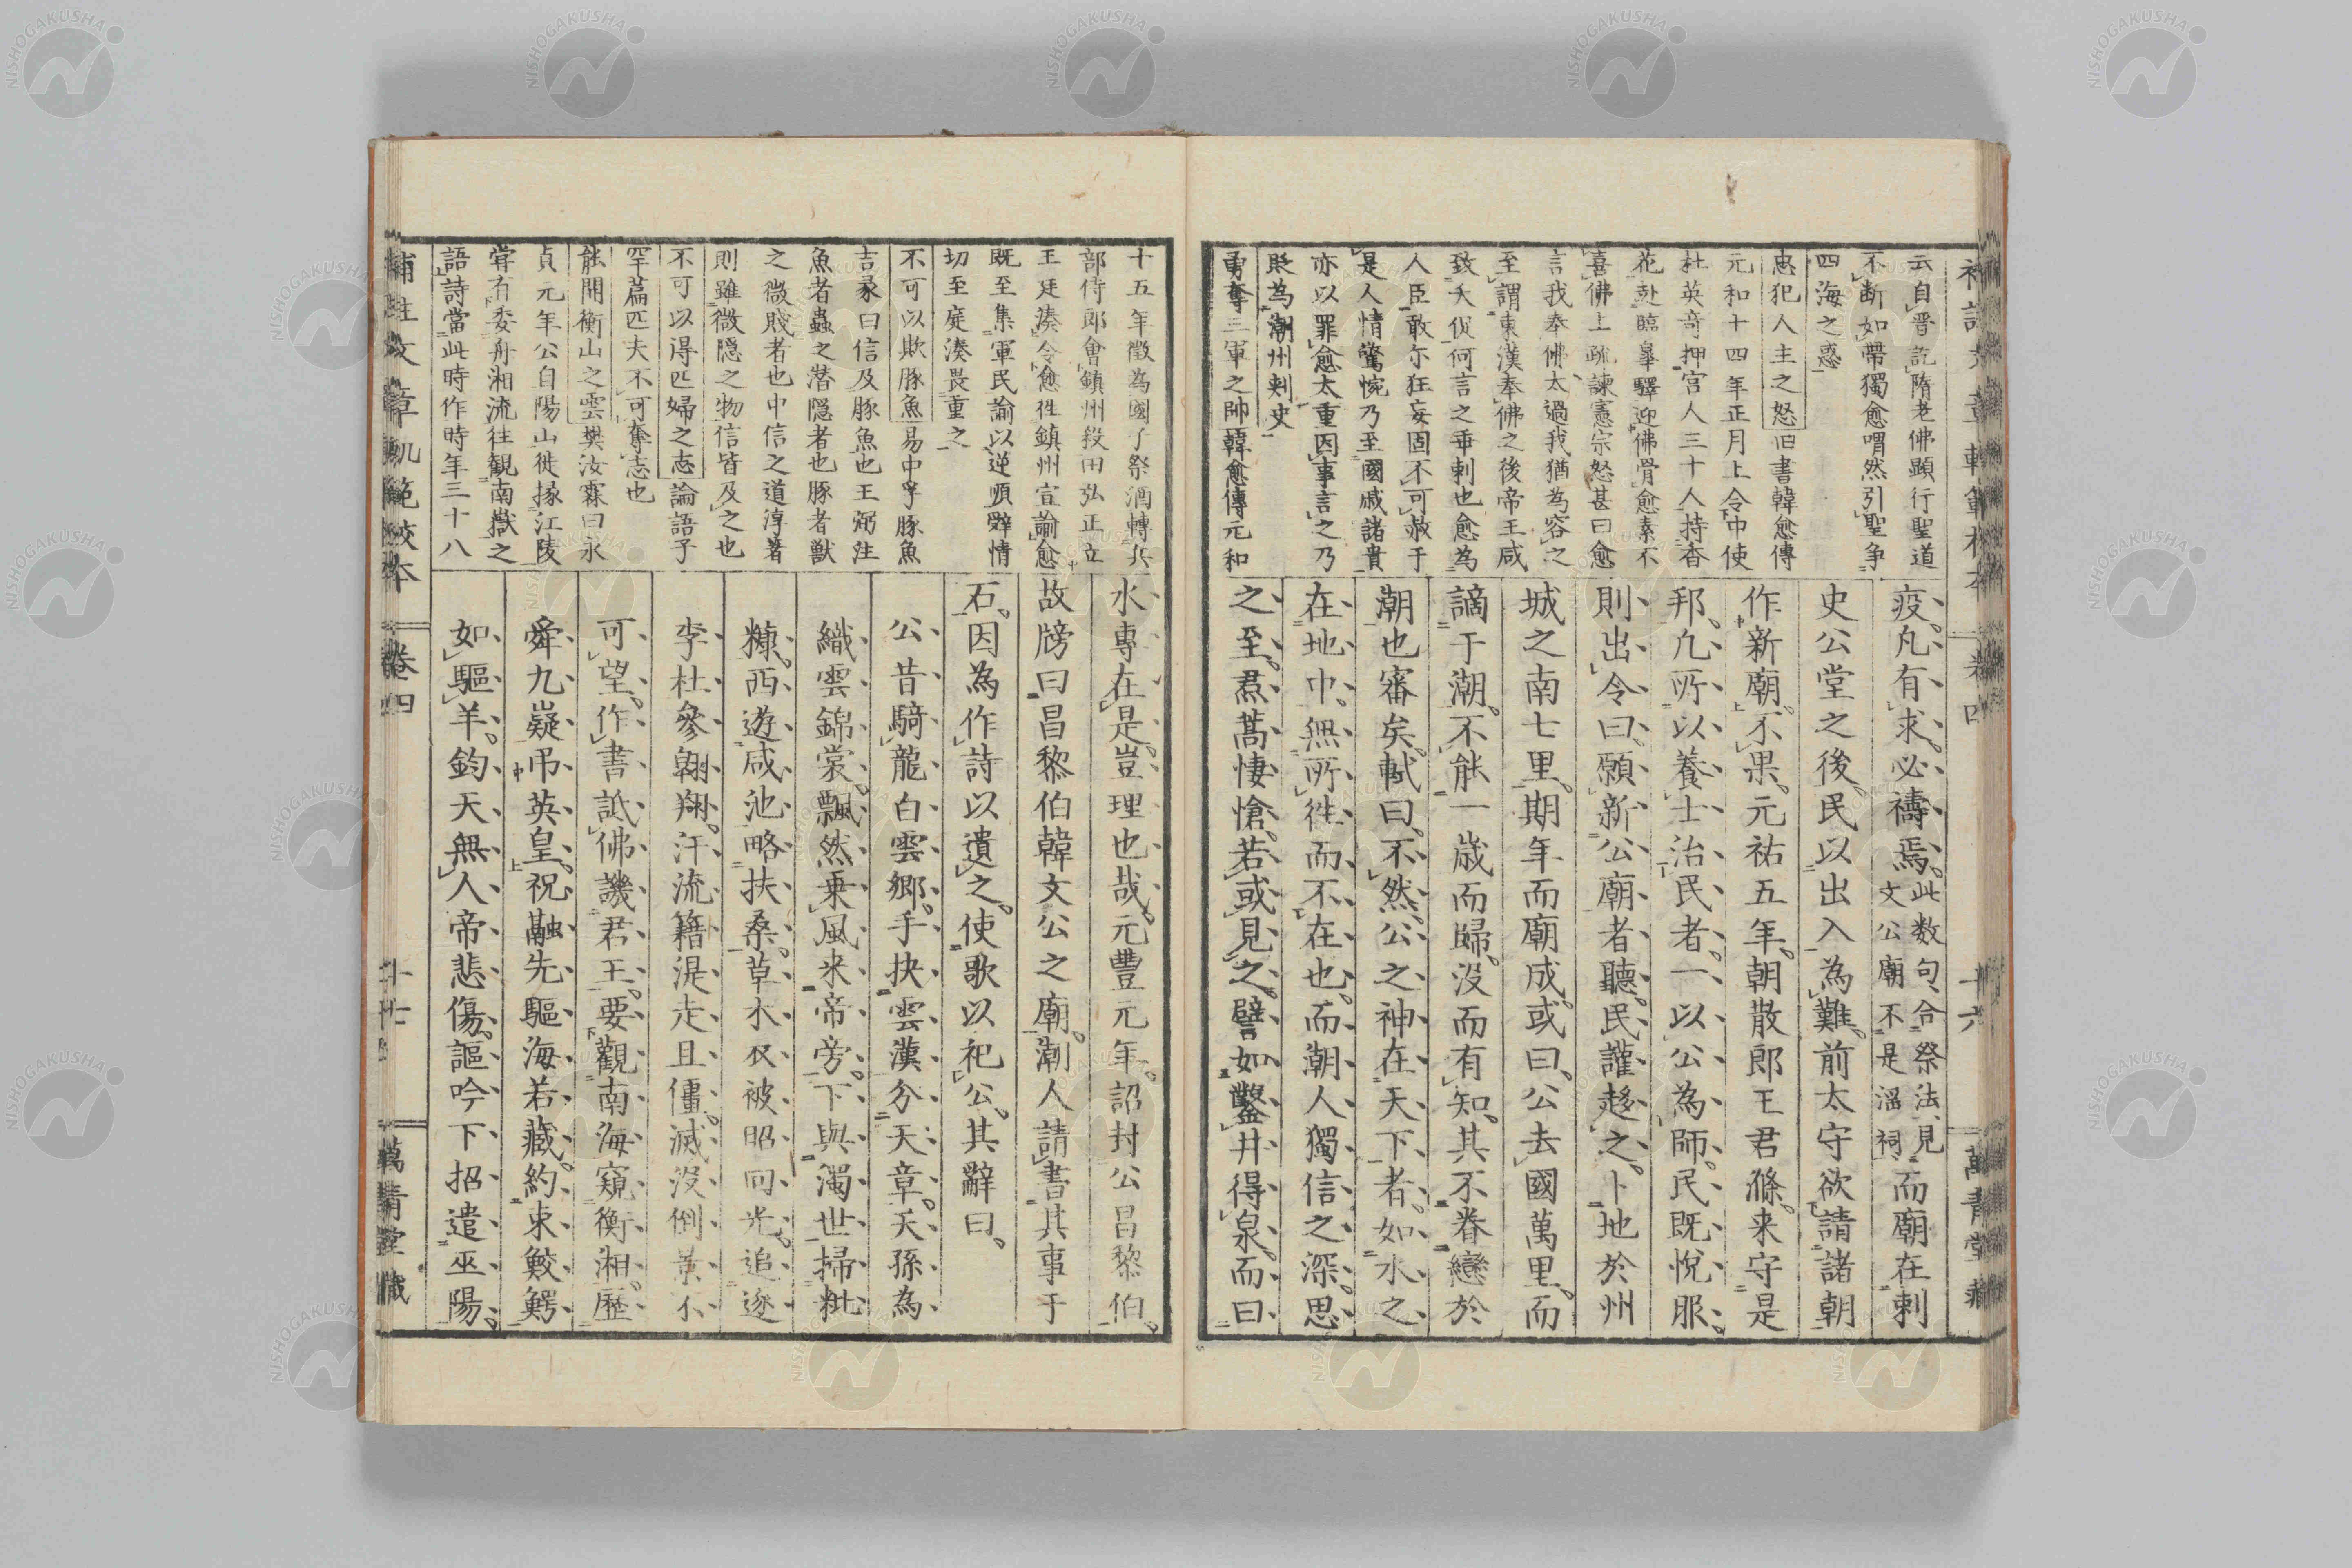 云自晋訖隋老佛顯行聖道
不断如帶獨愈喟然引聖争
四海之惑
忠犯人主之怒旧書韓愈傳
元和十四年正月上令中使
杜英奇押宮人三十人持香
花赴臨皐驛迎佛骨愈素不
喜佛上疏諫憲宗怒甚曰愈
言我奉佛太過我猶為容之
至謂東漢奉佛之後帝王咸
致夭促何言之乖剌也愈為
人臣敢尓狂妄固不可赦于
是人情驚惋乃至國戚諸貴
亦以罪愈太重因事言之乃
貶為潮州刺史
勇奪三軍之帥韓愈傳元和
疫、凡有求、必禱焉。此数句、合祭法、見文公廟不是淫祠、而廟在刺
史公堂之後、民以出入為難。前太守欲請諸朝
作新廟、不果。元祐五年、朝散郎王君滌、来守是
邦。凢所以養士治民者、一以公為師。民既悅服、
則出令曰、願新公廟者聽。民讙趍之、卜地於州
城之南七里、期年而廟成。或曰、公去國萬里、而
謫于潮。不能一歳而歸、没而有知、其不眷戀於
潮也審矣。軾曰、不然、公之神在天下者、如水之
在地中、無所往而不在也。而潮人獨信之深、思
之至。焄蒿悽愴、若或見之。譬如鑿井得泉、而曰
巻四
十六
萬青堂蔵
十五年徴為國子祭酒轉兵
部侍郎會鎮州殺田弘正立
王廷湊令愈徃鎮州宣諭愈
既至集軍民諭以逆順辭情
切至庭湊畏重之
不可以欺豚魚易中孚豚魚
吉彖曰信及豚魚也王弼注
魚者蟲之潜隠者也豚者獣
之微賎者也中信之道淳著
則雖微隠之物信皆及之也
不可以得匹婦之志論語子
罕篇匹夫不可奪志也
能開衡山之雲樊汝霖曰永
貞元年公自陽山徙掾江陵
甞有委舟湘流往観南嶽之
語詩當此時作時年三十八
水專在是、豈理也哉。元豐元年、詔封公昌黎伯、
故牓曰昌黎伯韓文公之廟。潮人請書其事于
石。因為作詩以遺之。使歌以祀公、其辭曰、
公昔騎龍白雲郷。手抉雲漢分天章。天孫為
織雲錦裳。飄然乗風来帝旁。下與濁世掃粃
糠。西遊咸池略扶桑。草木衣被昭回光。追逐
李杜參翱翔。汗流籍湜走且僵。滅没倒景不
可望。作書詆佛譏君王。要觀南海窺衡湘。歷
舜九嶷吊英皇。祝融先驅海若藏。約束鮫鰐
如驅羊。鈞天無人帝悲傷。謳吟下招遣巫陽。
補註文章軌範校本
巻四
十七
萬青堂蔵